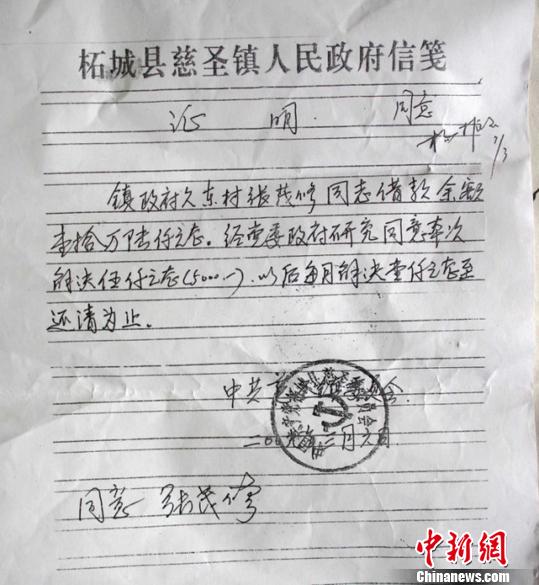 柘城县慈圣镇人民政府信笺
证 明
同意
镇政府欠东村张茂修同志借款余额
壹拾万陆仟元整。经党委政府研究同意本次
解决伍仟元整(5000.-)，以后每月解决壹仟元整至
还清为止。
中共
委员会
二月六日
同意 张茂修
中新网
Chinanews.com